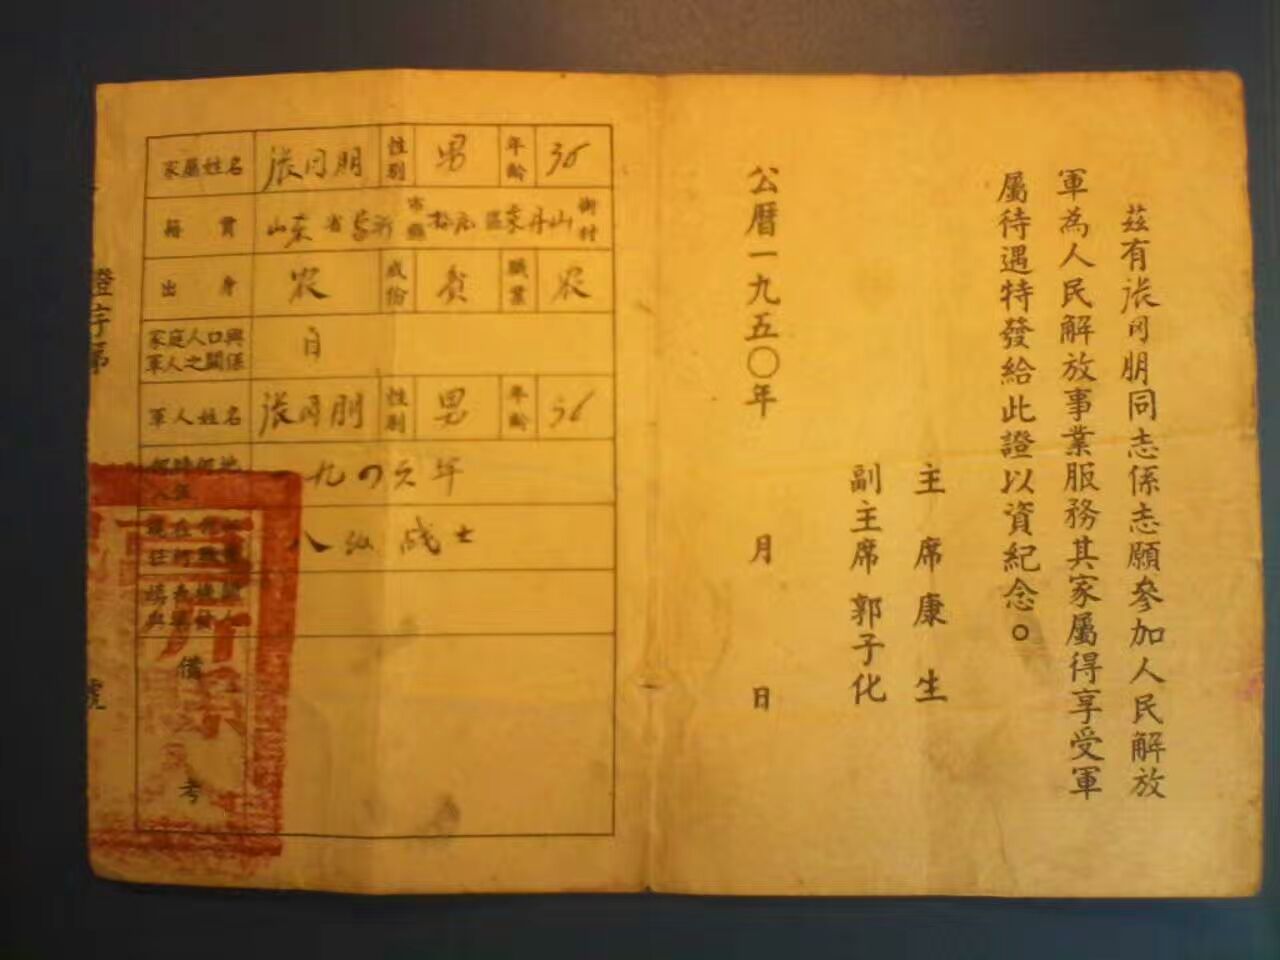 茲有張同朋同志係志願參加人民解放
軍為人民解放事業服務其家屬得享受軍
屬待遇特發給此證以資紀念。
主席康生
副主席郭子化
公曆一九五〇年 月 日
家屬姓名 張同朋 性别 男 年齡 36
籍貫 山东省 縣 區 山 街村
出身 农 成份 贫 職業 农
家庭人口與軍人之關係
軍人姓名 張同朋 性别 男 年齡 36
一九四六年
八纵战士
備考
證字第 號